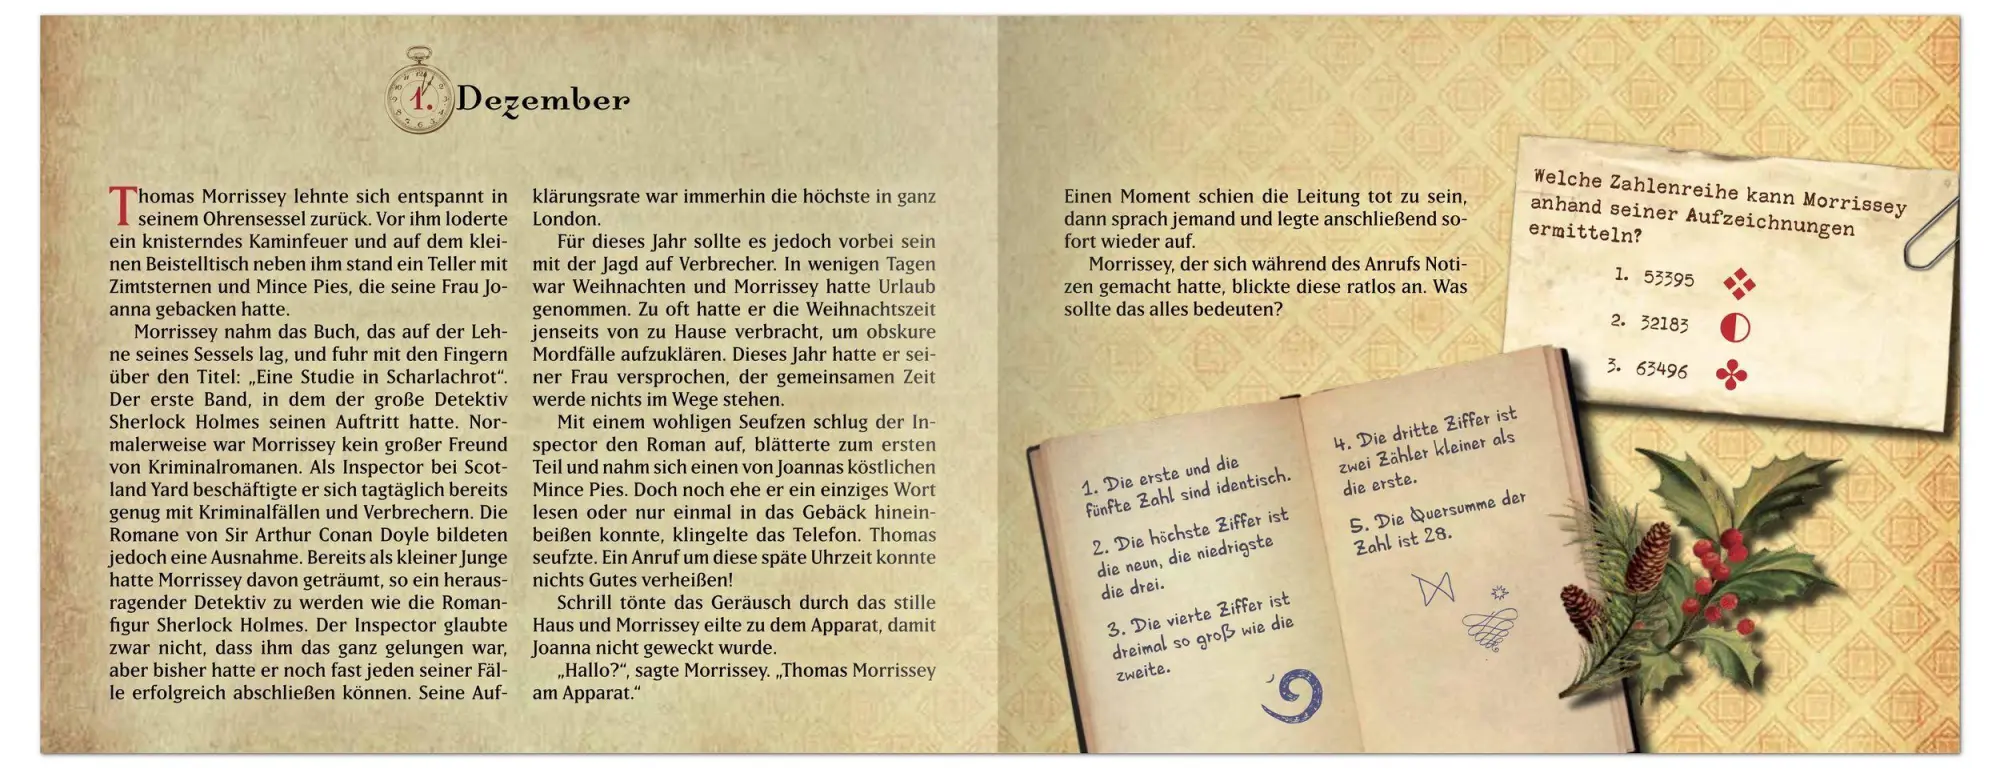 1. Dezember
Thomas Morrissey lehnte sich entspannt in
seinem Ohrensessel zurück. Vor ihm loderte
ein knisterndes Kaminfeuer und auf dem klei-
nen Beistelltisch neben ihm stand ein Teller mit
Zimtsternen und Mince Pies, die seine Frau Jo-
anna gebacken hatte.
Morrissey nahm das Buch, das auf der Leh-
ne seines Sessels lag, und fuhr mit den Fingern
über den Titel: „Eine Studie in Scharlachrot“.
Der erste Band, in dem der große Detektiv
Sherlock Holmes seinen Auftritt hatte. Nor-
malerweise war Morrissey kein großer Freund
von Kriminalromanen. Als Inspector bei Scot-
land Yard beschäftigte er sich tagtäglich bereits
genug mit Kriminalfällen und Verbrechern. Die
Romane von Sir Arthur Conan Doyle bildeten
jedoch eine Ausnahme. Bereits als kleiner Junge
hatte Morrissey davon geträumt, so ein heraus-
ragender Detektiv zu werden wie die Roman-
figur Sherlock Holmes. Der Inspector glaubte
zwar nicht, dass ihm das ganz gelungen war,
aber bisher hatte er noch fast jeden seiner Fäl-
le erfolgreich abschließen können. Seine Auf-
klärungsrate war immerhin die höchste in ganz
London.
Für dieses Jahr sollte es jedoch vorbei sein
mit der Jagd auf Verbrecher. In wenigen Tagen
war Weihnachten und Morrissey hatte Urlaub
genommen. Zu oft hatte er die Weihnachtszeit
jenseits von zu Hause verbracht, um obskure
Mordfälle aufzuklären. Dieses Jahr hatte er sei-
ner Frau versprochen, der gemeinsamen Zeit
werde nichts im Wege stehen.
Mit einem wohligen Seufzen schlug der In-
spector den Roman auf, blätterte zum ersten
Teil und nahm sich einen von Joannas köstlichen
Mince Pies. Doch noch ehe er ein einziges Wort
lesen oder nur einmal in das Gebäck hinein-
beißen konnte, klingelte das Telefon. Thomas
seufzte. Ein Anruf um diese späte Uhrzeit konnte
nichts Gutes verheißen!
Schrill tönte das Geräusch durch das stille
Haus und Morrissey eilte zu dem Apparat, damit
Joanna nicht geweckt wurde.
„Hallo?“, sagte Morrissey. „Thomas Morrissey
am Apparat.“
Einen Moment schien die Leitung tot zu sein,
dann sprach jemand und legte anschließend so-
fort wieder auf.
Morrissey, der sich während des Anrufs Noti-
zen gemacht hatte, blickte diese ratlos an. Was
sollte das alles bedeuten?
Welche Zahlenreihe kann Morrissey
anhand seiner Aufzeichnungen
ermitteln?
1. 53395
2. 32183
3. 63496
1. Die erste und die
fünfte Zahl sind identisch.
2. Die höchste Ziffer ist
die neun, die niedrigste
die drei.
3. Die vierte Ziffer ist
dreimal so groß wie die
zweite.
4. Die dritte Ziffer ist
zwei Zähler kleiner als
die erste.
5. Die Quersumme der
Zahl ist 28.